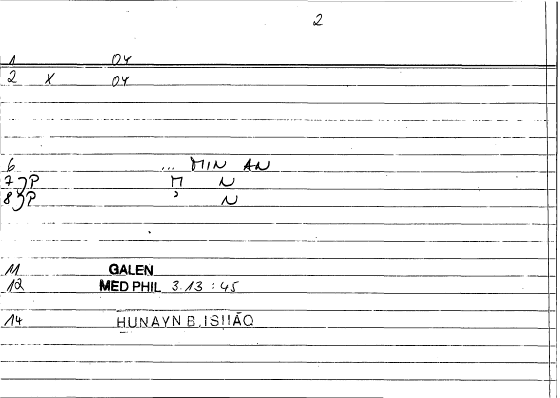 2
1 04
2 X 04
6 ... MIN AN
7 P M N
8 P ' N
11 GALEN
12 MED PHIL 3.13 : 45
14 HUNAYN B. ISḤĀQ